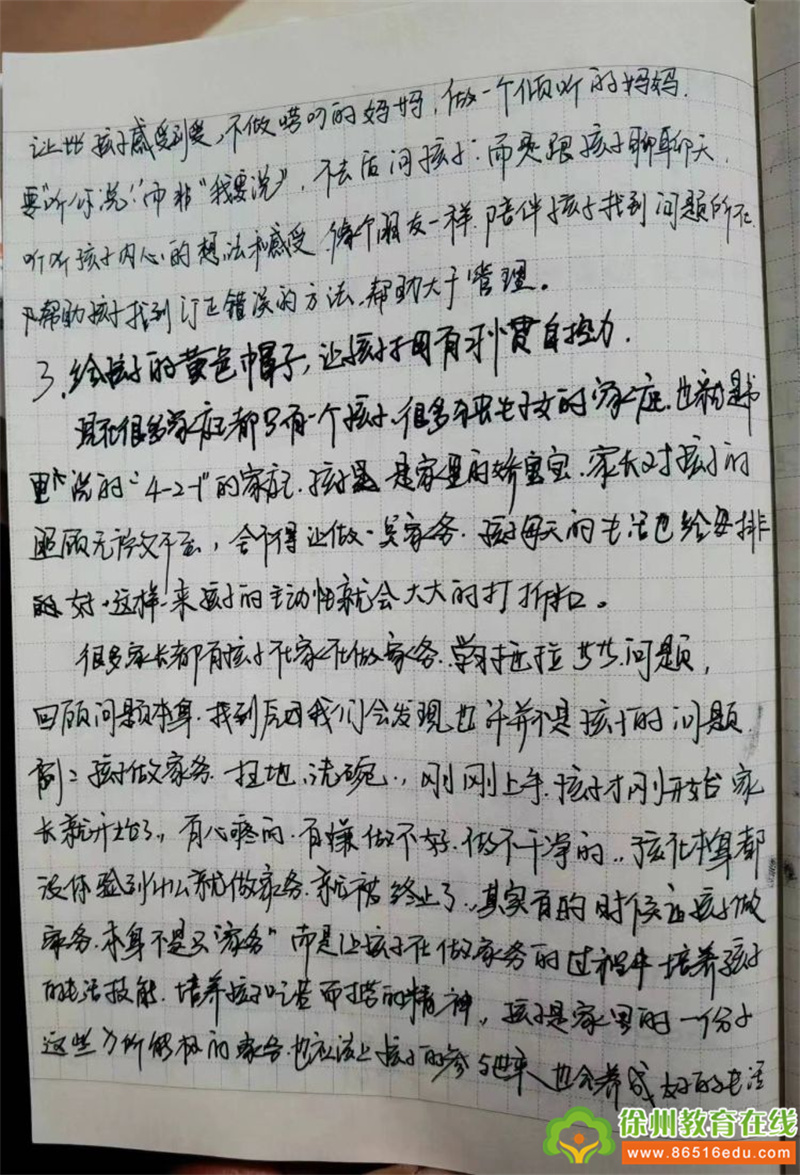 让孩子感受到爱,不做唠叨的妈妈,做一个倾听的妈妈.
要"听你说"而非"我要说",不去盾问孩子.而是跟孩子聊聊天,
听听孩子内心的想法和感受 像个朋友一样.陪伴孩子找到问题所在
帮助孩子找到订正错误的方法,帮助大于管理。
3.给孩子的黄色帽子,让孩子拥有习惯自控力.
现在很多家庭都只有一个孩子,很多独生子女的家庭.也就是书
里说的"4-2-1"的家庭.孩子是家里的娇宝宝.家长对孩子的
照顾无微不至,舍不得让做一点家务.孩子每天的生活也给安排
的好.这样一来孩子的主动性就会大大的打折扣。
很多家长都有孩子在家在做家务.学习拖拉 问题,
回顾问题本身.找到原因我们会发现也许并不是孩子的问题
例:孩子做家务.扫地,洗碗.,刚刚上手.孩子才刚开始家
长就开始了,有心疼的.有嫌做不好.做不干净的,,孩子本身都
没体验到什么就做家务.就被终止了,其实有的时候让孩子做
家务.本身不是只"家务"而是让孩子在做家务的过程中培养孩子
的生活技能.培养孩子吃苦而 的精神,孩子是家里的一份子
这些力所能及的家务.也应该让孩子的参与进来 也会养成好的生活
徐州教育在线
www.86516edu.com